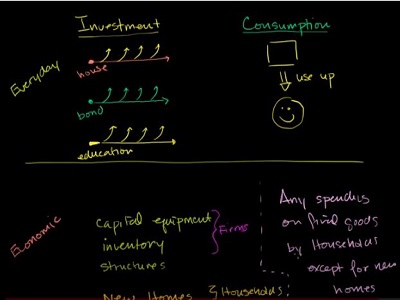 Investment
Consumption
Everyday
house
bond
education
use up
Economic
Capital equipment
inventory
structures
Firms
New Homes
Households
Any spending
on final goods
by Households
except for new
homes